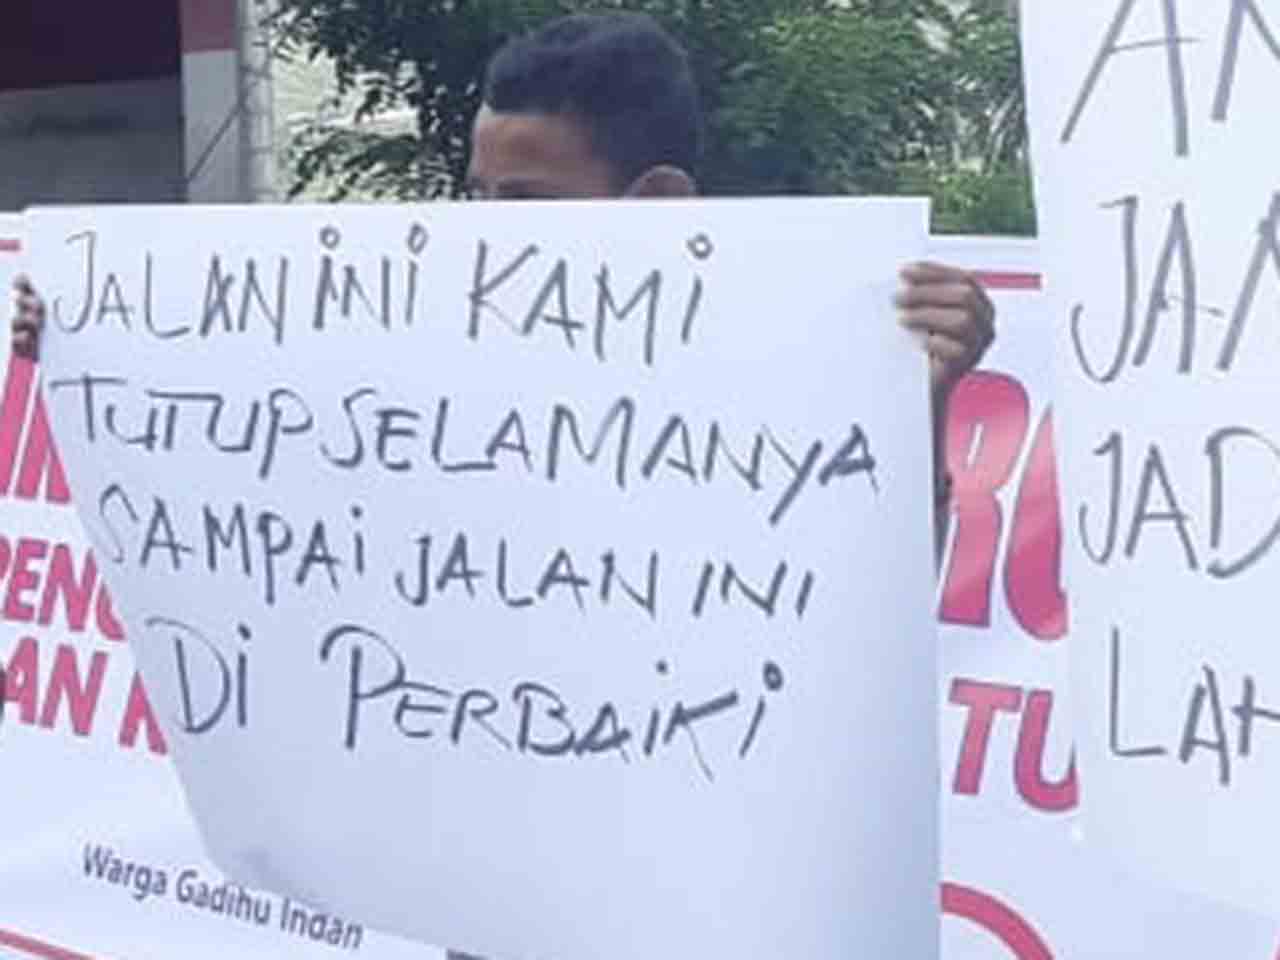 JALAN iNi KAMi
TUTUP SELAMANYA
SAMPAi JALAN INI
Di PERBAiKi
Warga Gadihu Indan
TU
AN
JAN
JAD
LAH